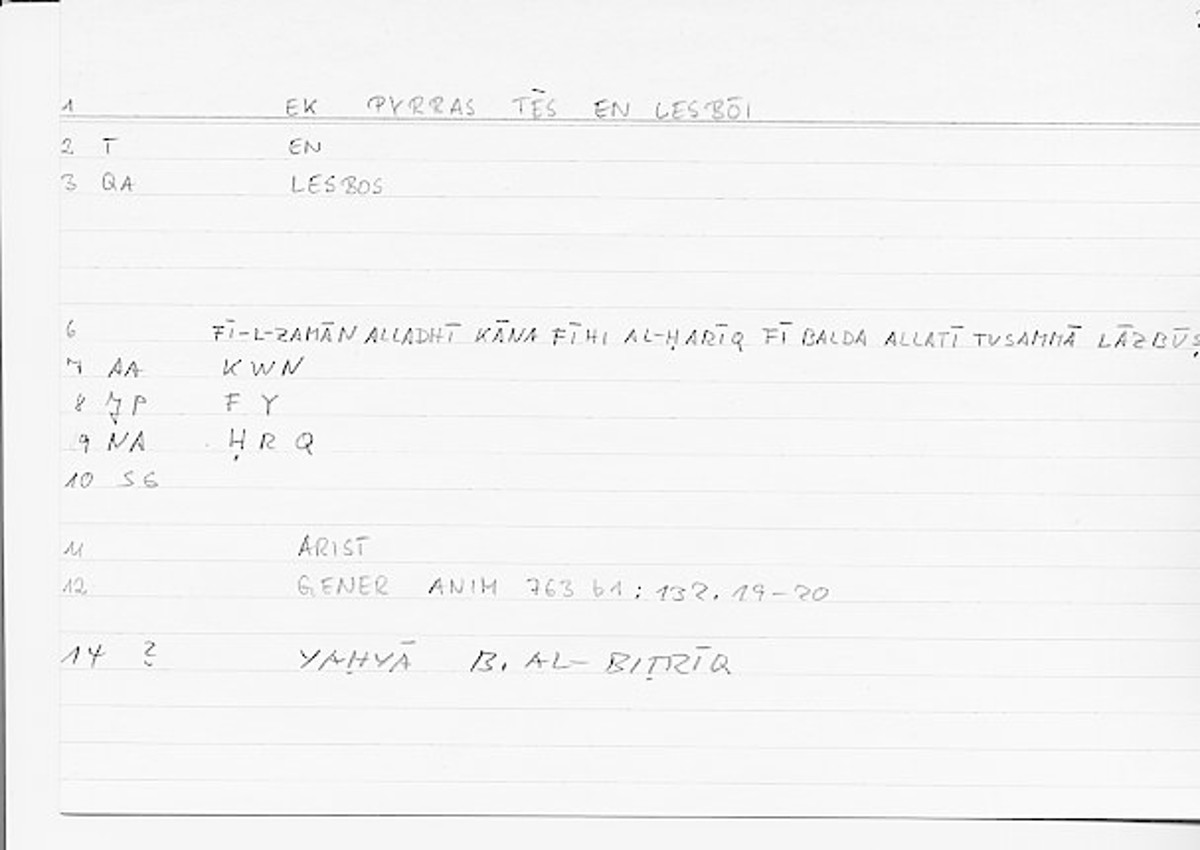 1 EK PYRRAS TĒS EN LESBŌI
2 T EN
3 QA LESBOS
6 FĪ-L-ZAMĀN ALLADHĪ KĀNA FĪHI AL-ḤARĪQ FĪ BALDA ALLATĪ TUSAMMĀ LĀZBŪṢ
7 AA KWN
8 JP F Y
9 NA Ḥ R Q
10 SG
11 ARIST
12 GENER ANIM 763 b1 : 132. 19-20
14 ? YAḤYĀ B. AL-BIṬRĪQ